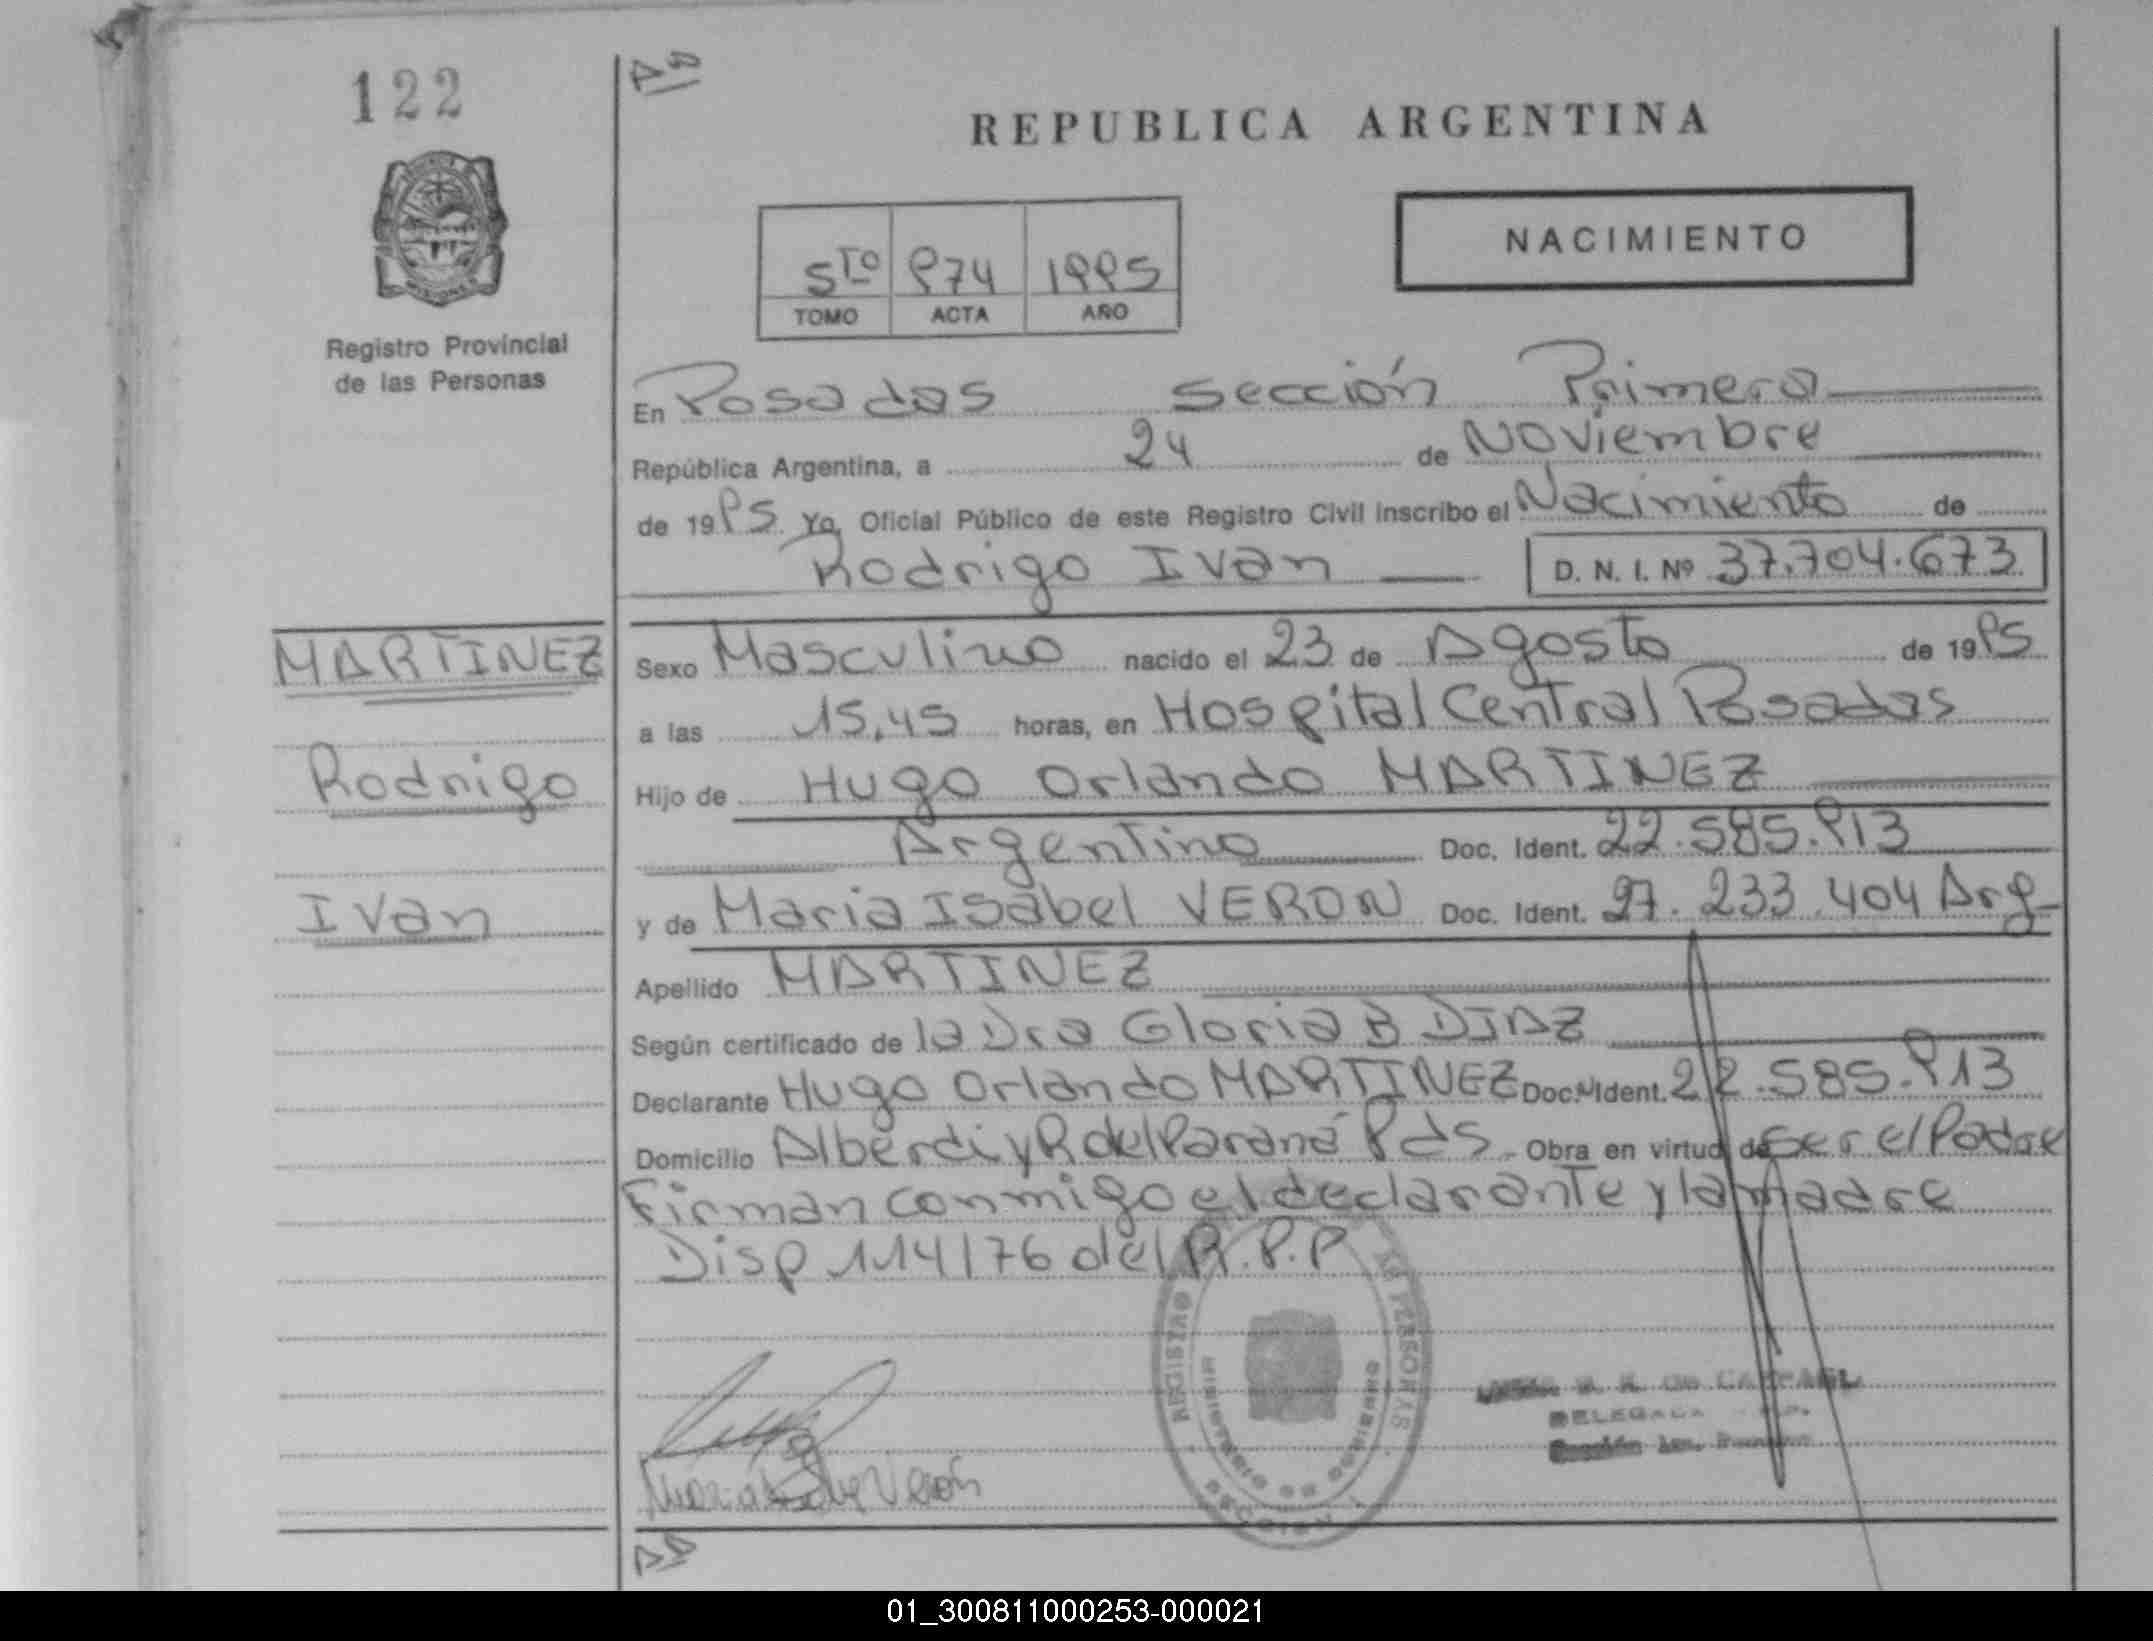 122
REPUBLICA ARGENTINA
NACIMIENTO
5TO 974 1995
TOMO ACTA AÑO
Registro Provincial
de las Personas
En Posadas Sección Primera
República Argentina, a 24 de Noviembre
de 1995. Yo, Oficial Público de este Registro Civil inscribo el Nacimiento de
Rodrigo Ivan D. N. I. Nº 37.704.673
MARTINEZ
Rodrigo
Ivan
Sexo Masculino nacido el 23 de Agosto de 1995
a las 15,45 horas, en Hospital Central Posadas
Hijo de Hugo Orlando MARTINEZ
Argentino Doc. Ident. 22.585.913
y de Maria Isabel VERON Doc. Ident. 27.233.404 Arg
Apellido MARTINEZ
Según certificado de la Dra Gloria B DIAZ
Declarante Hugo Orlando MARTINEZ Doc. Ident. 22.585.913
Domicilio Alberdi y R del Paraná Pds. Obra en virtud de ser el Padre
Firman conmigo el declarante y la Madre
Disp 114/76 del R.P.P
REGISTRO PERSONAS
MINISTERIO DE GOBIERNO
SECCION
DELEGADA
Maria Verón
01_300811000253-000021